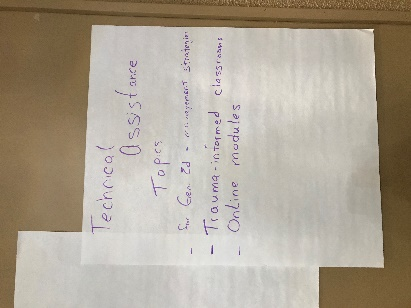 Technical
Assistance
Topics
- for Gen Ed - management strategies
- Trauma-informed classrooms
- Online modules